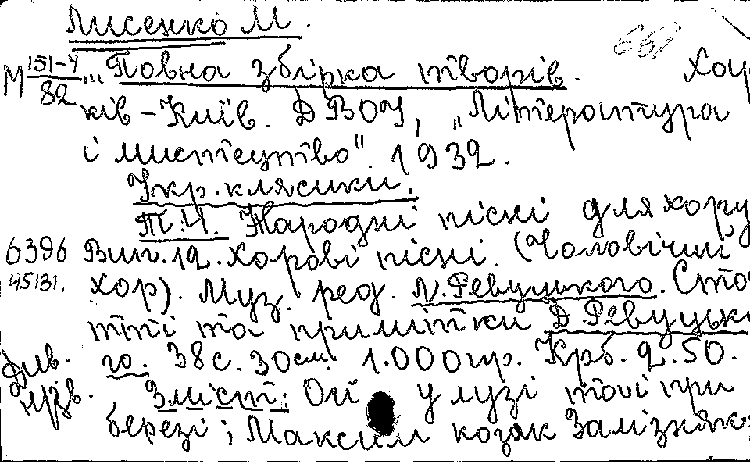 Лисенко М.
М 151-4/82 „Повна збірка творів. Хар
ків – Київ. ДВОУ, „Література
і мистецтво". 1932.
Укр. клясики.
Т.Ч. Народні пісні для хору
6396 Вип. 12. Хорові пісні. (Чоловічий
45131. хор). Муз. ред. Л. Ревуцького. Ста
тті та примітки Д. Ревуцько
го. 38 с. 30 см. 1.000 пр. Крб. 2.50.
Див.
нзв. Зміст: Ой у лузі та й при
березі; Максим козак Залізняк;